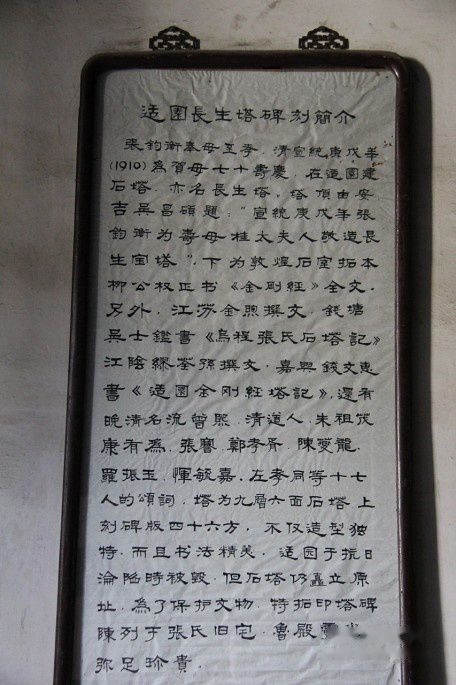 适園長生塔碑刻簡介
張鈞衡奉母至孝．清宣統庚戌年
(1910)為賀母七十壽慶．在适園建
石塔．亦名長生塔．塔頂由安
吉吳昌碩題：“宣統庚戌年張
鈞衡为壽母桂太夫人敬造長
生宝塔”．下为敦煌石室拓本
柳公权正书《金剛經》全文．
另外．江苏金煦撰文．錢塘
吳士鑑書《烏程張氏石塔記》
江陰繆荃孫撰文．嘉興錢文惠
書《适園金剛經塔記》．還有
晚清名流曾熙．清道人．朱祖茂
康有為．張謇．鄭孝胥 陳夔龍．
羅張玉．惲毓嘉．左孝同等十七
人的頌詞．塔为九層六面石塔．上
刻碑版四十六方．不仅造型独
特．而且书法精美．适园于抗日
淪陷時被毀．但石塔仍矗立原
址．為了保护文物．特拓印塔碑
陳列于張氏旧宅．魯殿
弥足珍貴．